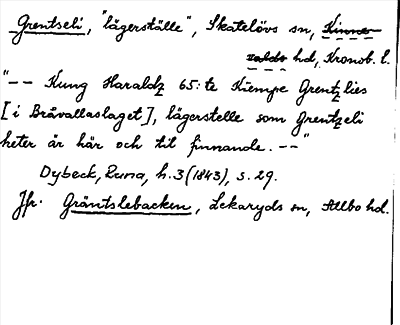 Grentseli, "lägerställe", Skatelövs sn, Kinne-
valds hd, Kronob. l.
"-- Kung Haraldz 65:te Kiempe Grentzlies
[i Bråvallaslaget], lägerstelle som Grentzeli
heter är här och til finnande. --"
Dybeck, Runa, h.3 (1843), s. 29.
Jfr. Gräntslebacken, Lekaryds sn, Allbo hd.